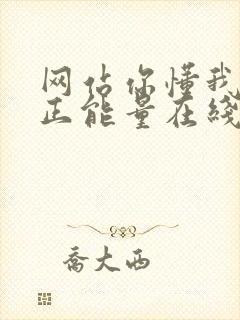 网站你懂我
正能量在线
乔大西